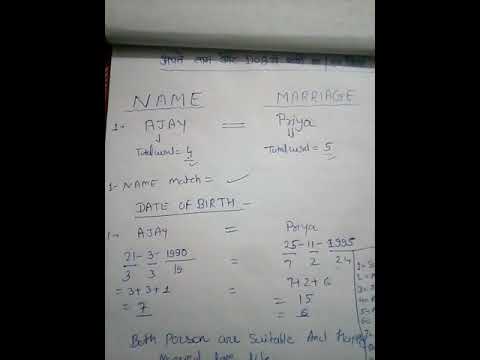 अपने नाम और DOB से
NAME MARRIAGE
1- AJAY = Priya
Total word = 4 Total word = 5
1- NAME match = ✓
DATE OF BIRTH -
1- AJAY = Priya
21 - 3 - 1990 = 25 - 11 - 1995
3 3 19 7 2 24
= 3+3+1 = 7+2+6
= 7 = 15
= 6
Both Person are Suitable And Happy